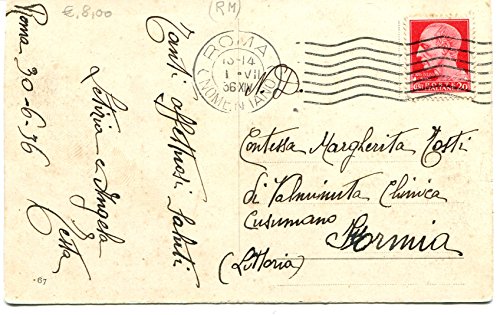 € 8,00
(RM)
Roma 30-6-36
Tanti affettuosi saluti
Letizia e Angela
ROMA
13-14
1 VII
36 XIV
(NOMENTANO)
20
Contessa Margherita Tosti
di Valminuta Clinica
Cusumano
Formia
(Littoria)
·67